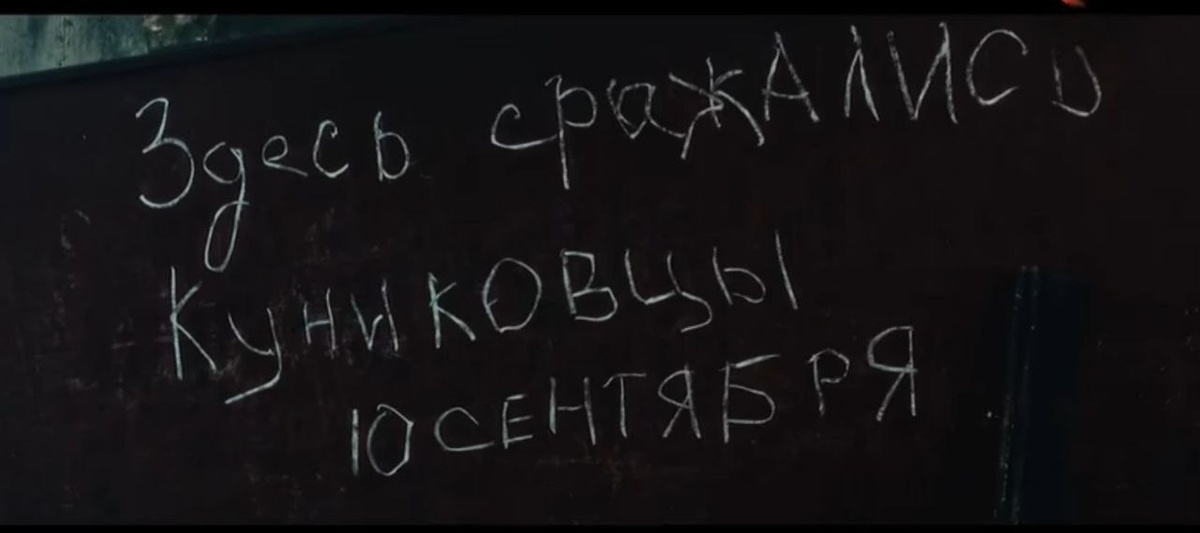 Здесь сражАЛИСЬ
КуниКОВЦЫ
10 СЕНТЯБРЯ